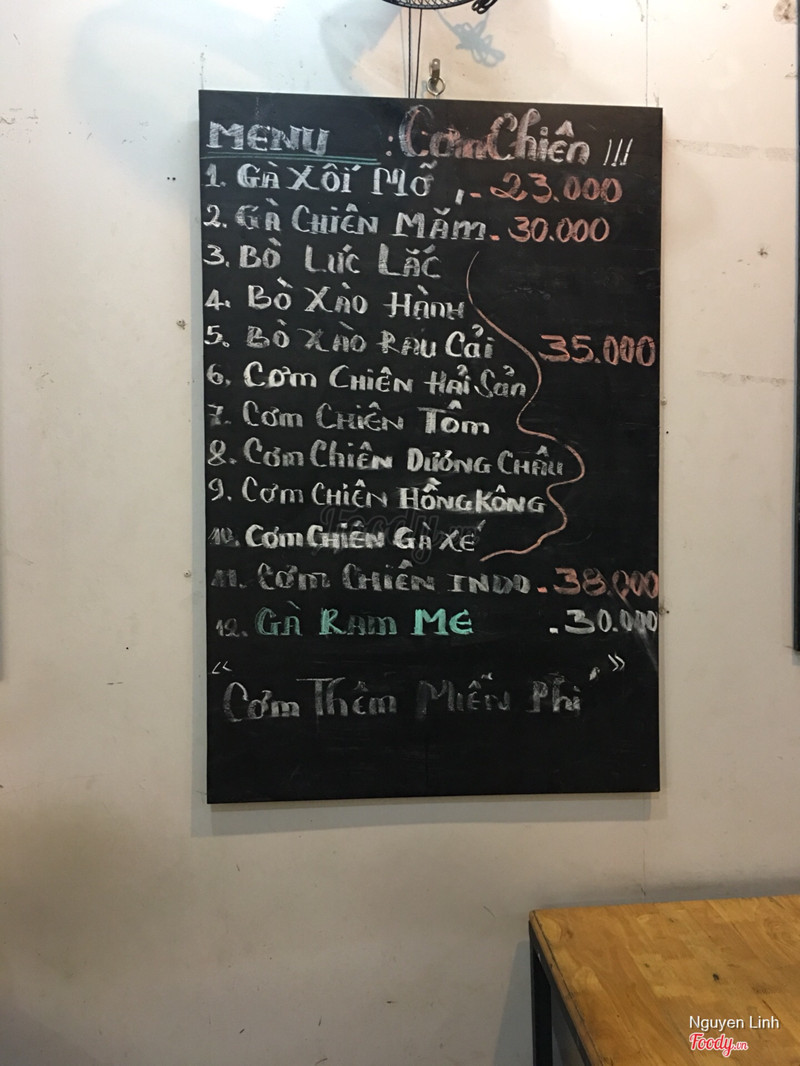 MENU : Cơm Chiên !!!
1. GÀ XỐI MỠ .- 23.000
2. GÀ CHIÊN MẮM - 30.000
3. BÒ LÚC LẮC
4. BÒ XÀO HÀNH
5. BÒ XÀO RAU CẢI 35.000
6. CƠM CHIÊN HẢI SẢN
7. CƠM CHIÊN TÔM
8. CƠM CHIÊN DƯƠNG CHÂU
9. CƠM CHIÊN HỒNG KÔNG
10. CƠM CHIÊN GÀ XÉ
11. CƠM CHIÊN INDO - 38.000
12. GÀ RAM ME . 30.000
"Cơm Thêm Miễn Phí"
Foody.vn
Nguyen Linh
Foody.vn